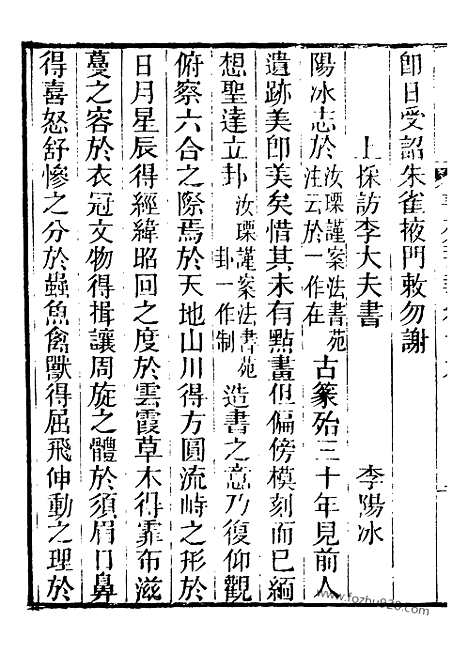 卽日受詔朱雀掖門敕勿謝
上採訪李大夫書 李陽冰
陽冰志於汝瑮謹案法書苑注云於一作在古篆殆三十年見前人
遺跡美卽美矣惜其未有點畫但偏傍模刻而巳緬
想聖達立卦汝瑮謹案法書苑卦一作制造書之意乃復仰觀
俯察六合之際焉於天地山川得方圓流峙之形於
日月星辰得經緯昭回之度於雲霞草木得霏布滋
蔓之容於衣冠文物得揖讓周旋之體於須眉口鼻
得喜怒舒慘之分於蟲魚禽獸得屈飛伸動之理於
www.fozhu920.com